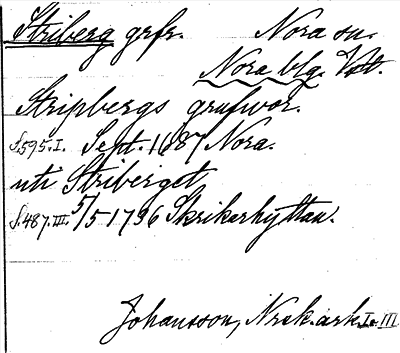 Striberg grfr. Nora sn.
Nora blg. Vstl.
Stripbergs grufwor.
S.595.I. Sept. 1687 Nora.
uti Striberget
S.487.III. 5/5 1796 Skrikarhyttan.
Johansson, Nrsk. ark. I o III